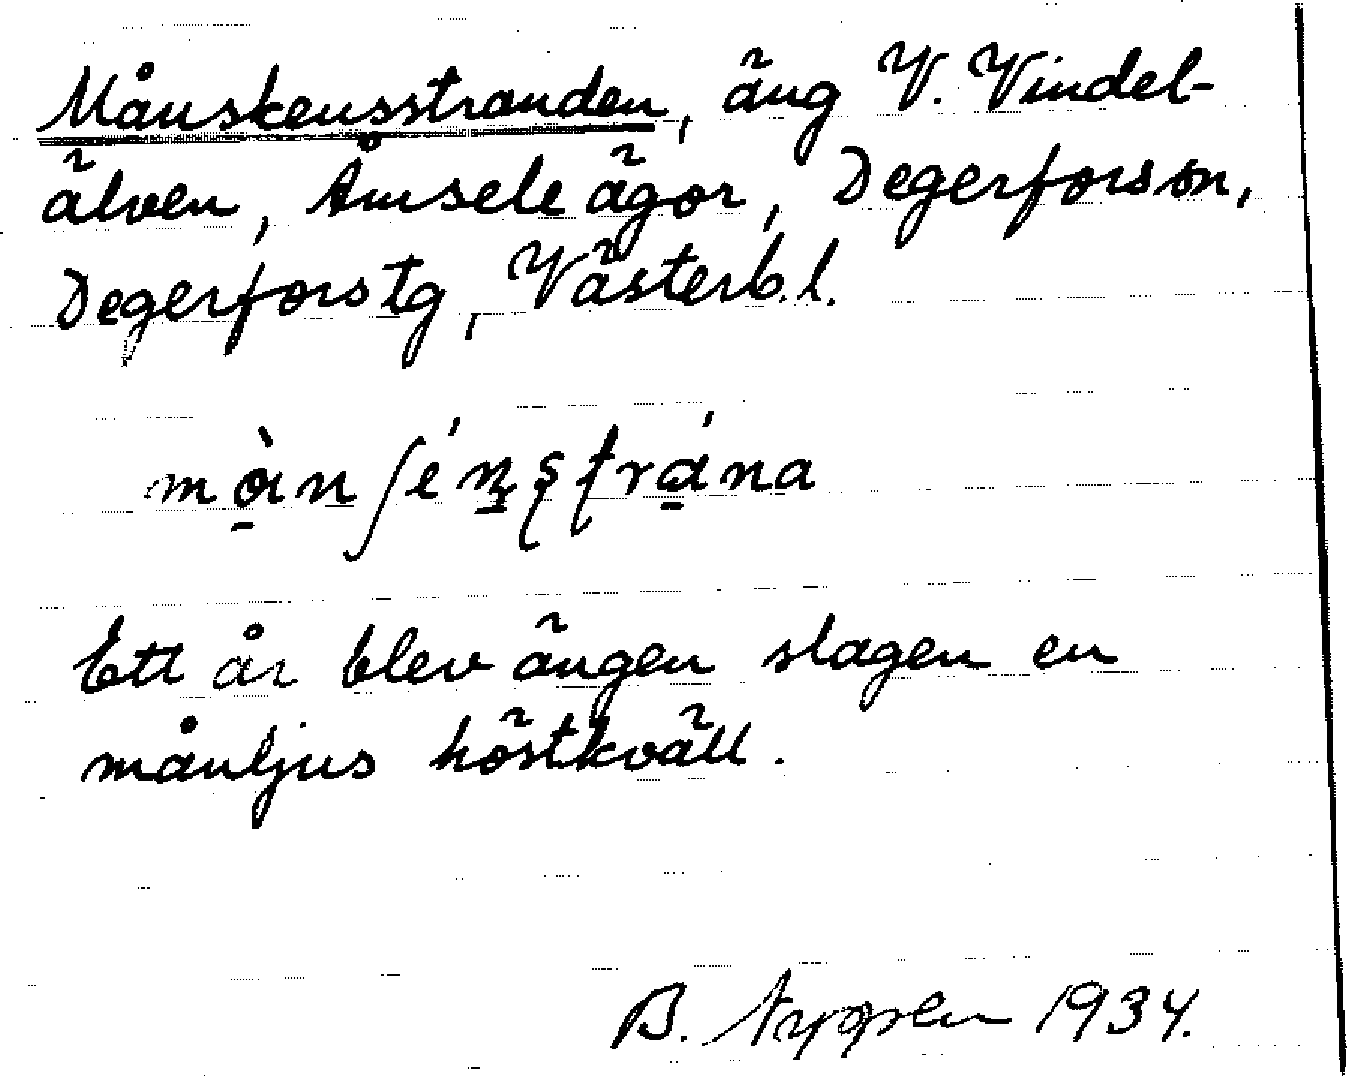 Månskensstranden, äng V. Vindel-
älven, Åmsele ägor, Degerforssn,
Degerfors tg, Västerb. l.
Ett år blev ängen slagen en
månljus höstkväll.
B. 1934.